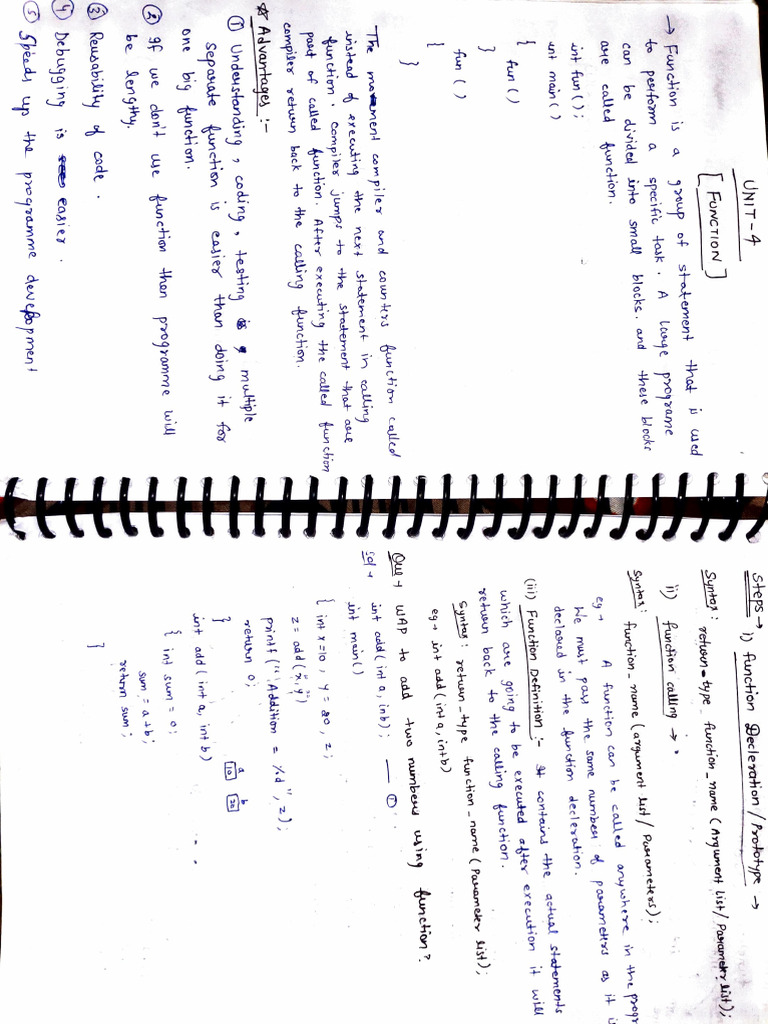 UNIT-4
[FUNCTION]
→ Function is a group of statement that is used
to perform a specific task. A large programe
can be divided into small blocks. and these blocks
are called function.
int fun();
int main()
{ fun()
}
fun()
{
}
The moment compiler and counters function called
instead of executing the next statement in calling
function. Compiler jumps to the statement that are
part of called function. After executing the called function
compiler return back to the calling function.
* Advantages :-
① Understanding, coding, testing multiple
separate function is easier than doing it for
one big function.
② If we don't use function than programme will
be lengthy.
③ Reusability of code.
④ Debugging is easier.
⑤ Speeds up the programme development
Steps → i) function Decleration / Prototype →
Syntax: return-type function_name (Argument list/Parameter list);
ii) function calling →
Syntax: function_name (argument list / Parameters);
eg → A function can be called anywhere in the
We must pass the same number of parameters as it
declared in the function decleration.
(iii) Function Definition :- It contains the actual statements
which are going to be executed after execution it will
return back to the calling function.
Syntax: return_type function_name (Parameter list);
eg → int add(int a, int b)
Que → WAP to add two numbers using function?
Sol → int add(int a, int b); — ①
int main()
{ int x=10, y=20, z;
z = add(x, y)
printf("Addition = %d", z);
return 0;
}
a b
10 20
int add(int a, int b)
{ int sum = 0;
sum = a+b;
return sum;
}